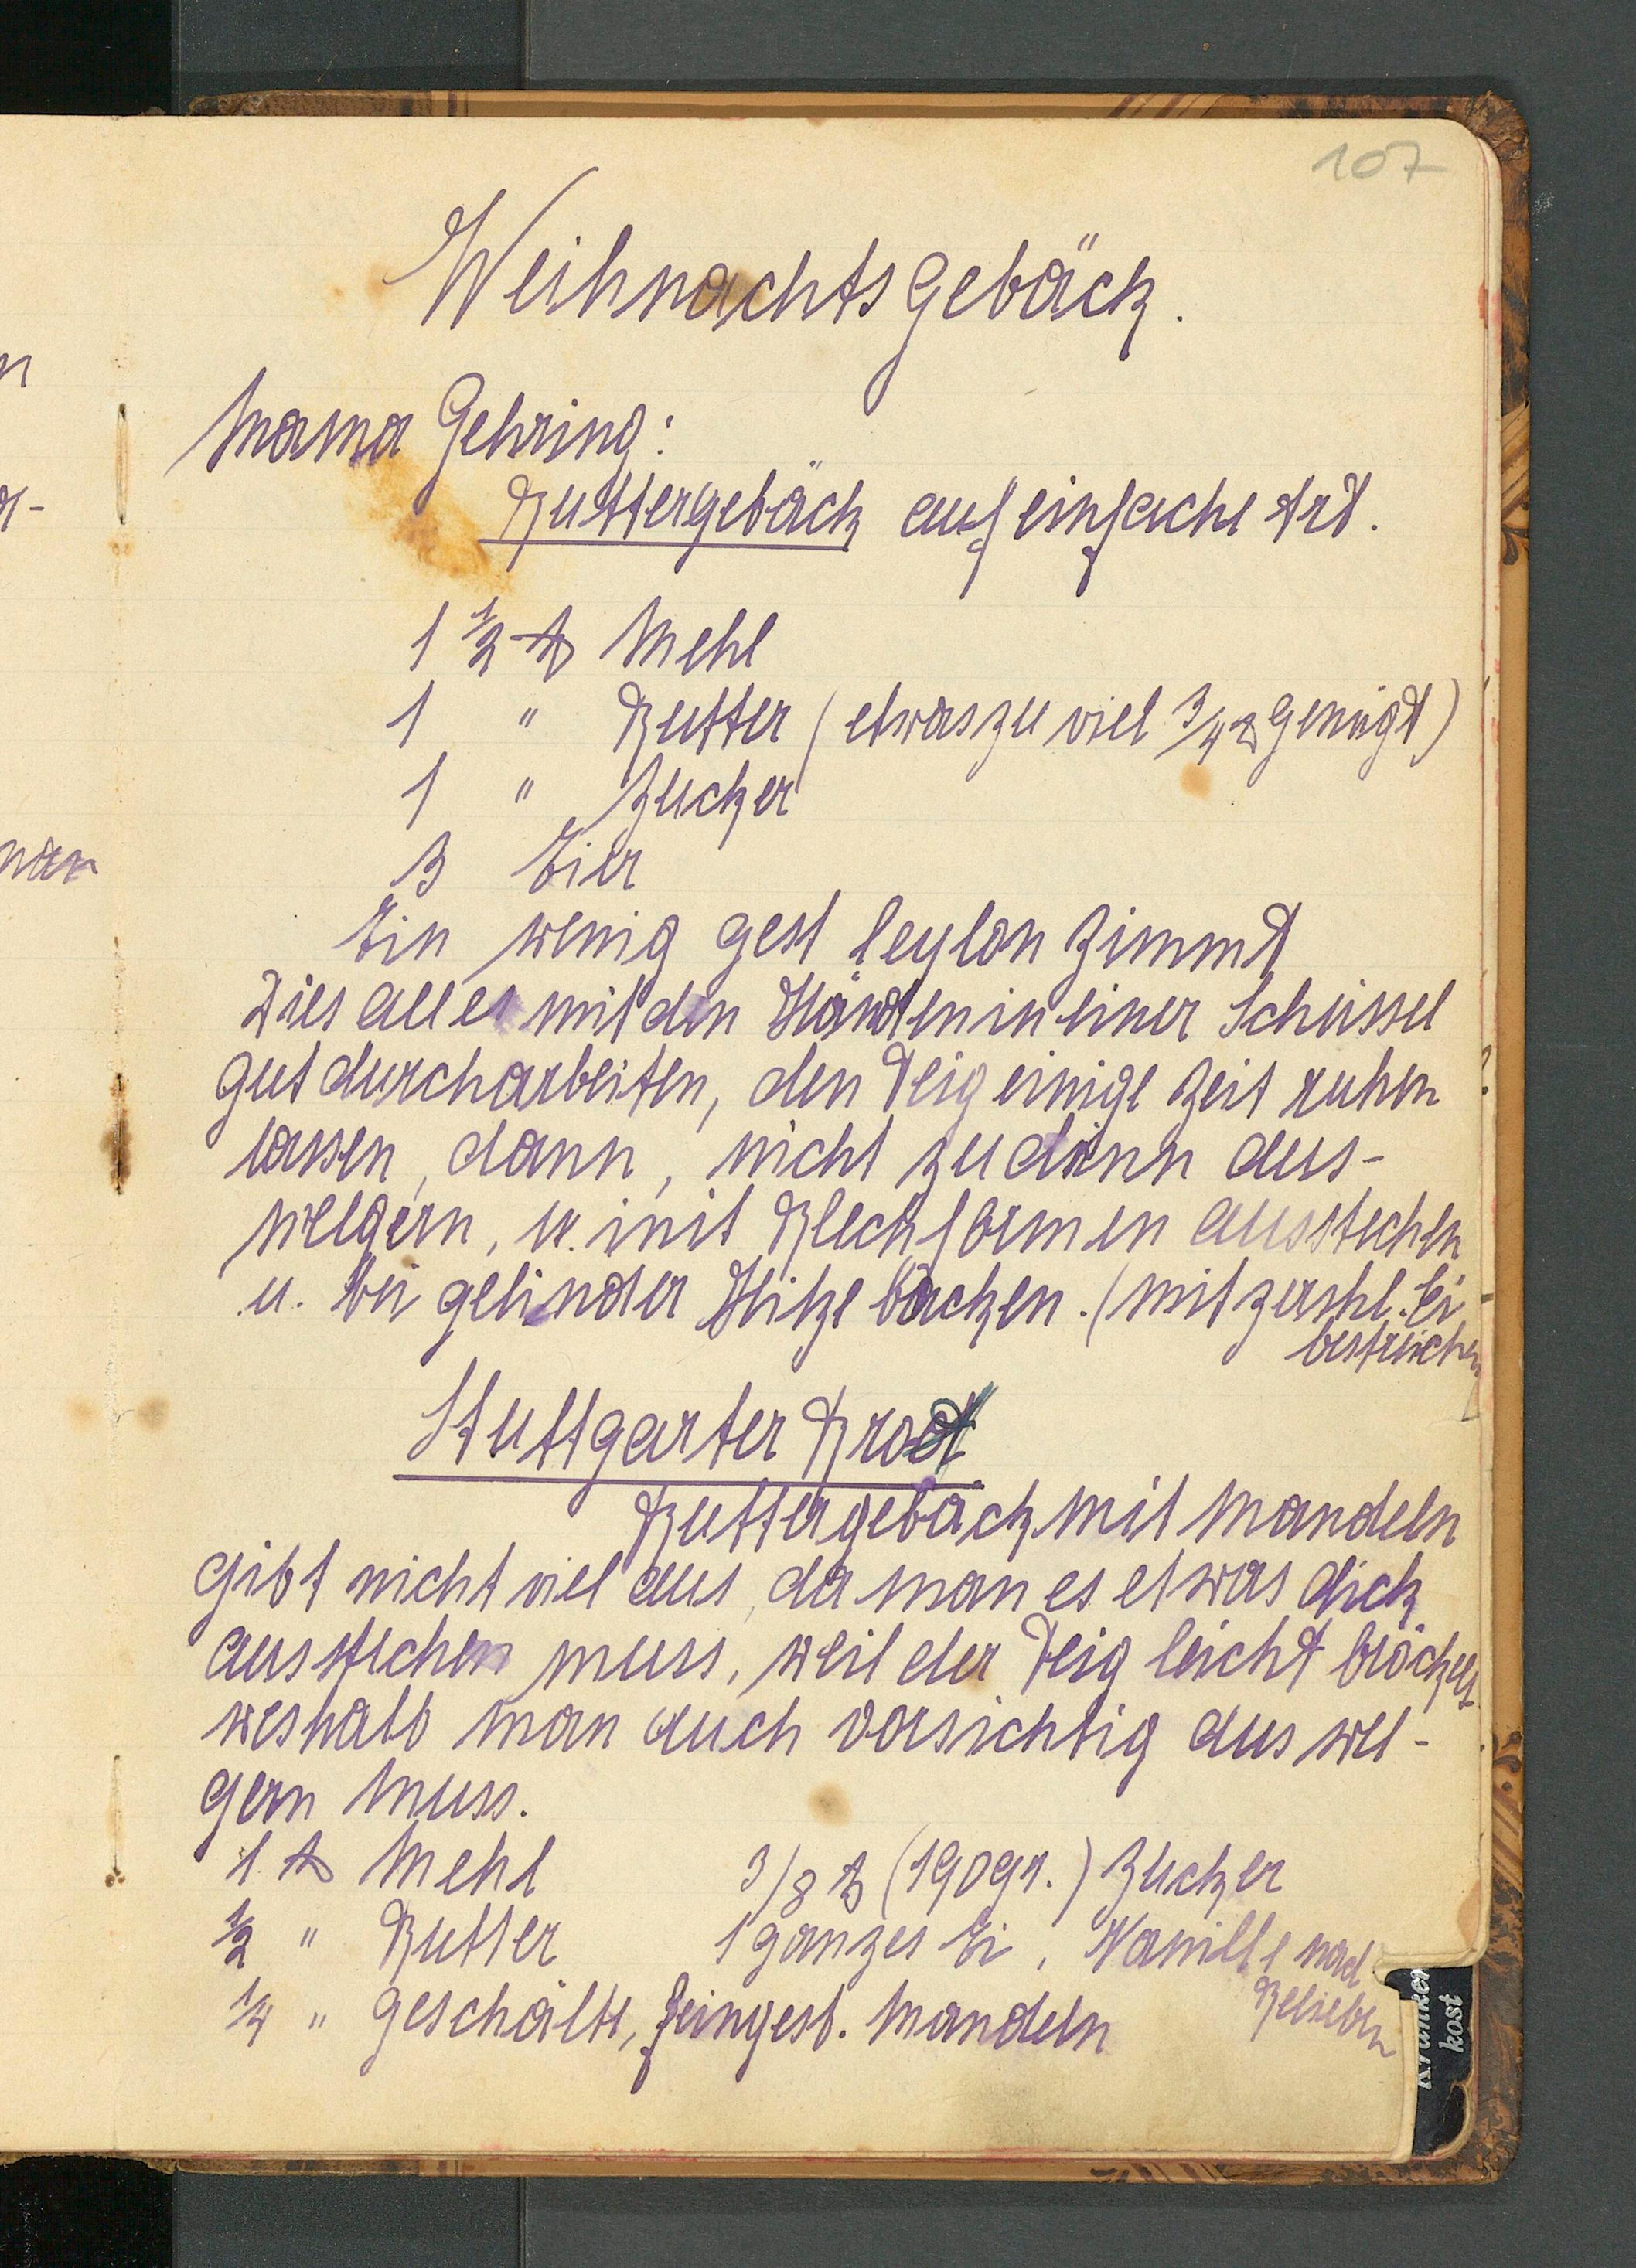 107
Weihnachtsgebäck.
Mama Gehring:
Buttergebäck auf einfache Art.
1 1/2 ℔ Mehl
1 " Butter (etwas zu viel 3/4 ℔ genügt)
1 " Zucker
3 Eier
Ein wenig gest Ceylon Zimmt
Dies alles mit den Händen in einer Schüssel
gut durcharbeiten, den Teig einige Zeit ruhen
lassen, dann, nicht zu dünn aus-
welgern, u. mit Blechformen ausstechen
u. bei gelinder Hitze backen. (mit zerkl. Ei
bestreichen
Stuttgarter Brot
Buttergebäck mit Mandeln
gibt nicht viel aus, da man es etwas dick
ausstechen muss, weil der Teig leicht bröckelt
weshalb man auch vorsichtig auswel-
gern muss.
1 ℔ Mehl 3/8 ℔ (190gr.) Zucker
1/2 " Butter 1 ganzes Ei, Vanille nach
Belieben
1/4 " geschälte, feingest. Mandeln
Kranken
kost
n
-
man